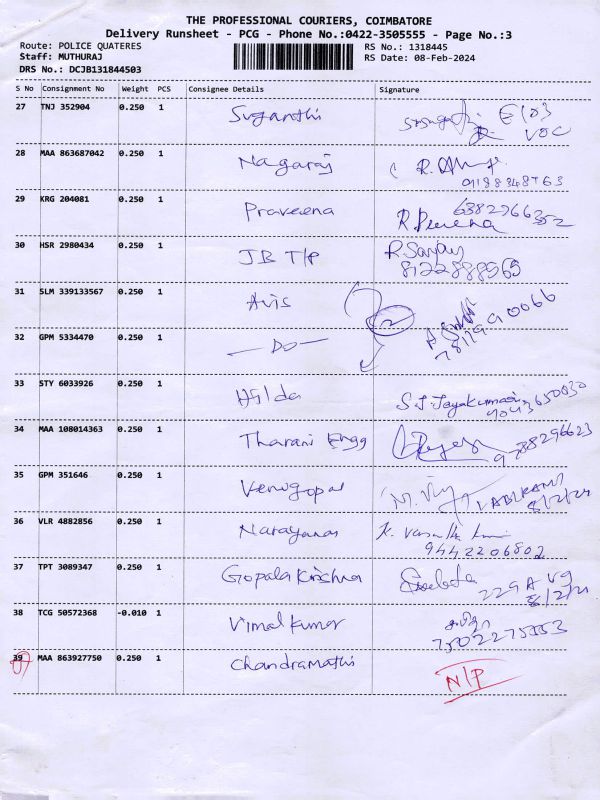 THE PROFESSIONAL COURIERS, COIMBATORE
Delivery Runsheet - PCG - Phone No.:0422-3505555 - Page No.:3
Route: POLICE QUATERES RS No.: 1318445
Staff: MUTHURAJ RS Date: 08-Feb-2024
DRS No.: DCJB131844503
S No Consignment No Weight PCS Consignee Details Signature
27 TNJ 352904 0.250 1 Suganthi E103
VOC
28 MAA 863687042 0.250 1 Nagaraj
29 KRG 204081 0.250 1 Praveena 6382966352
30 HSR 2980434 0.250 1 JB T/P
8122888565
31 SLM 339133567 0.250 1 Avis
32 GPM 5334470 0.250 1 — DO — 2
33 STY 6033926 0.250 1 Hilda S.J. Jayakumari
9043650030
34 MAA 108014363 0.250 1 Tharani Engg 9788296623
35 GPM 351646 0.250 1 Venugopal
8/2/24
36 VLR 4882856 0.250 1 Narayanan
9442206802
37 TPT 3089347 0.250 1 Gopala Krishna 229 A
8/2/21
38 TCG 50572368 -0.010 1 Vimal Kumar
39 MAA 863927750 0.250 1 Chandramathi N/P